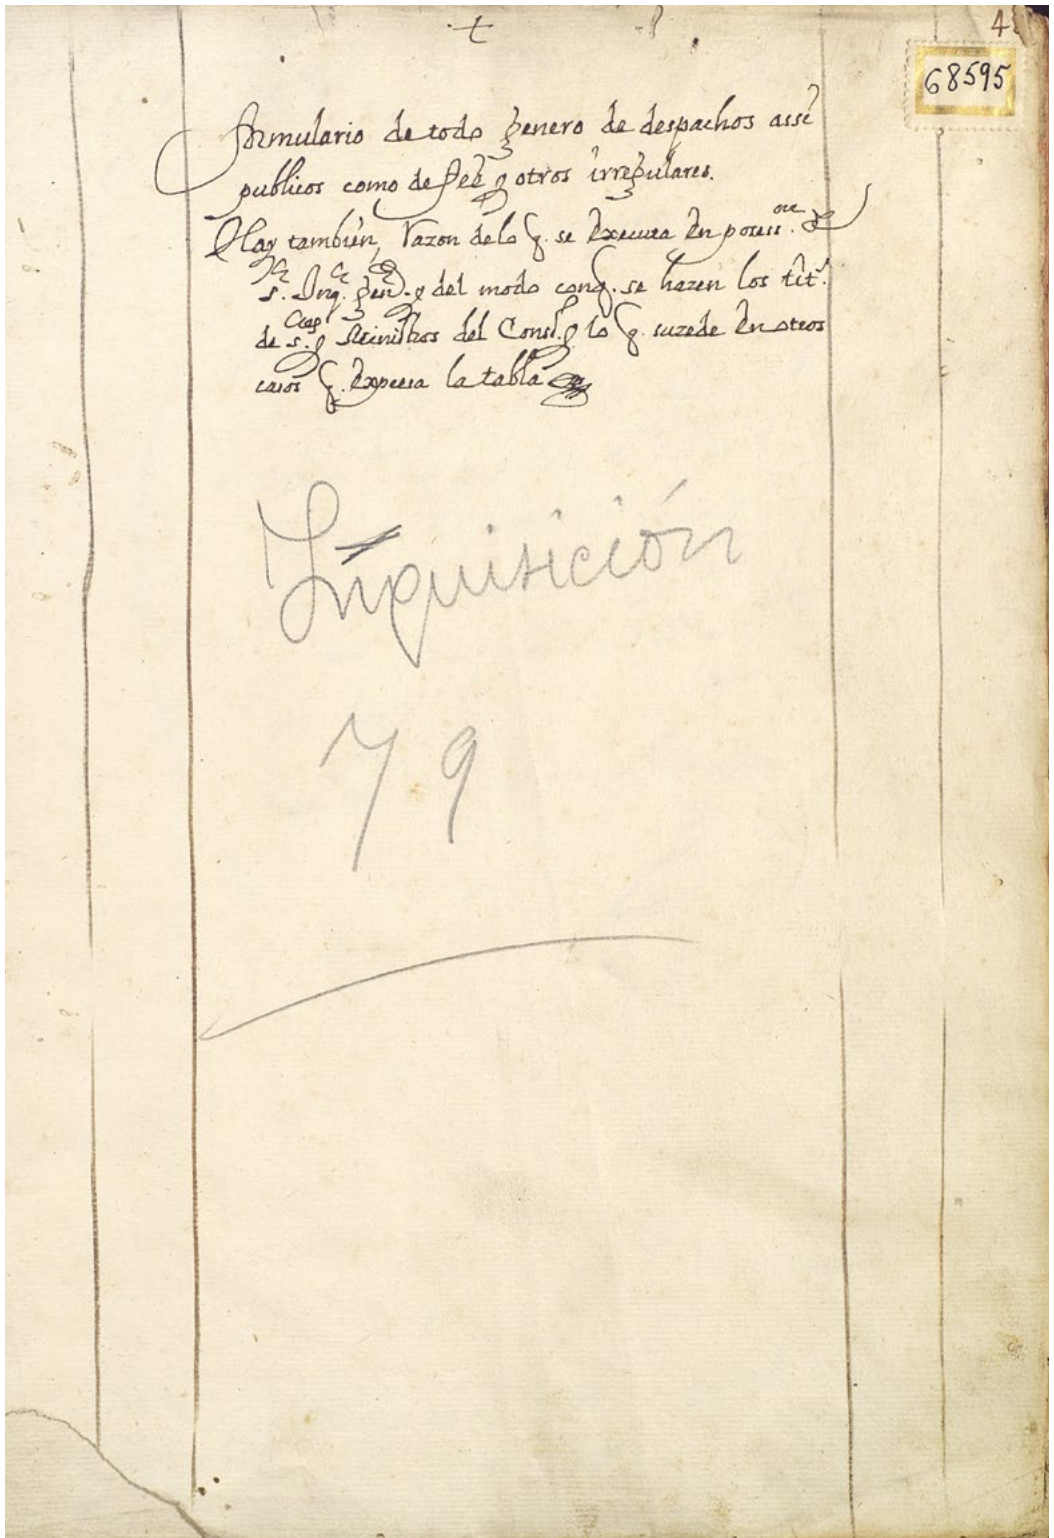 4
68595
formulario de todo genero de despachos assi
publicos como de y otros irregulares.
Hay tambien, razon de lo q. se executa en posess.one de
s. Inq. gen. y del modo con q. se hazen los tit.
de s. y Ministros del Cons.o y lo q. suzede en otros
casos q. expresa la tabla
Inquisición
79